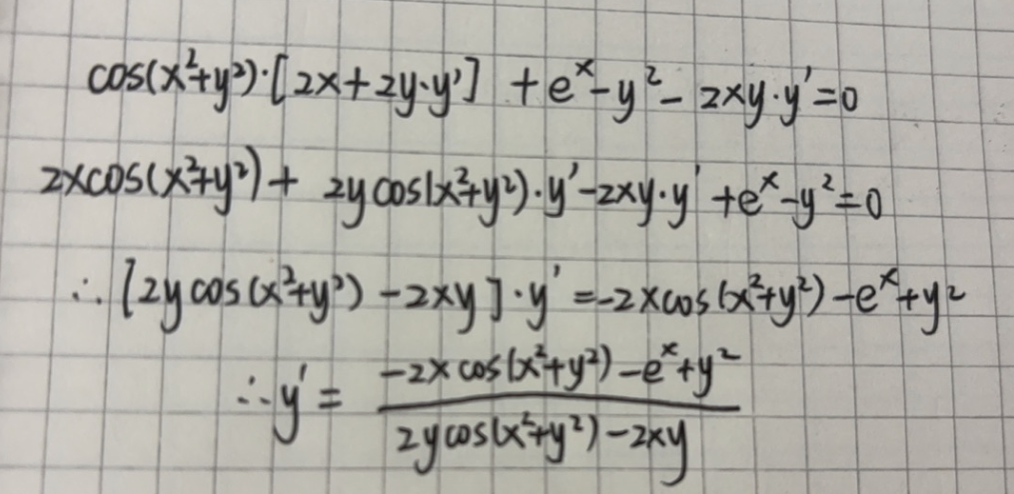 cos(x²+y²)·[2x+2y·y'] +eˣ-y²-2xy·y'=0
2xcos(x²+y²)+2ycos(x²+y²)·y'-2xy·y'+eˣ-y²=0
∴[2ycos(x²+y²)-2xy]·y'=-2xcos(x²+y²)-eˣ+y²
∴y'=\frac{-2xcos(x²+y²)-eˣ+y²}{2ycos(x²+y²)-2xy}